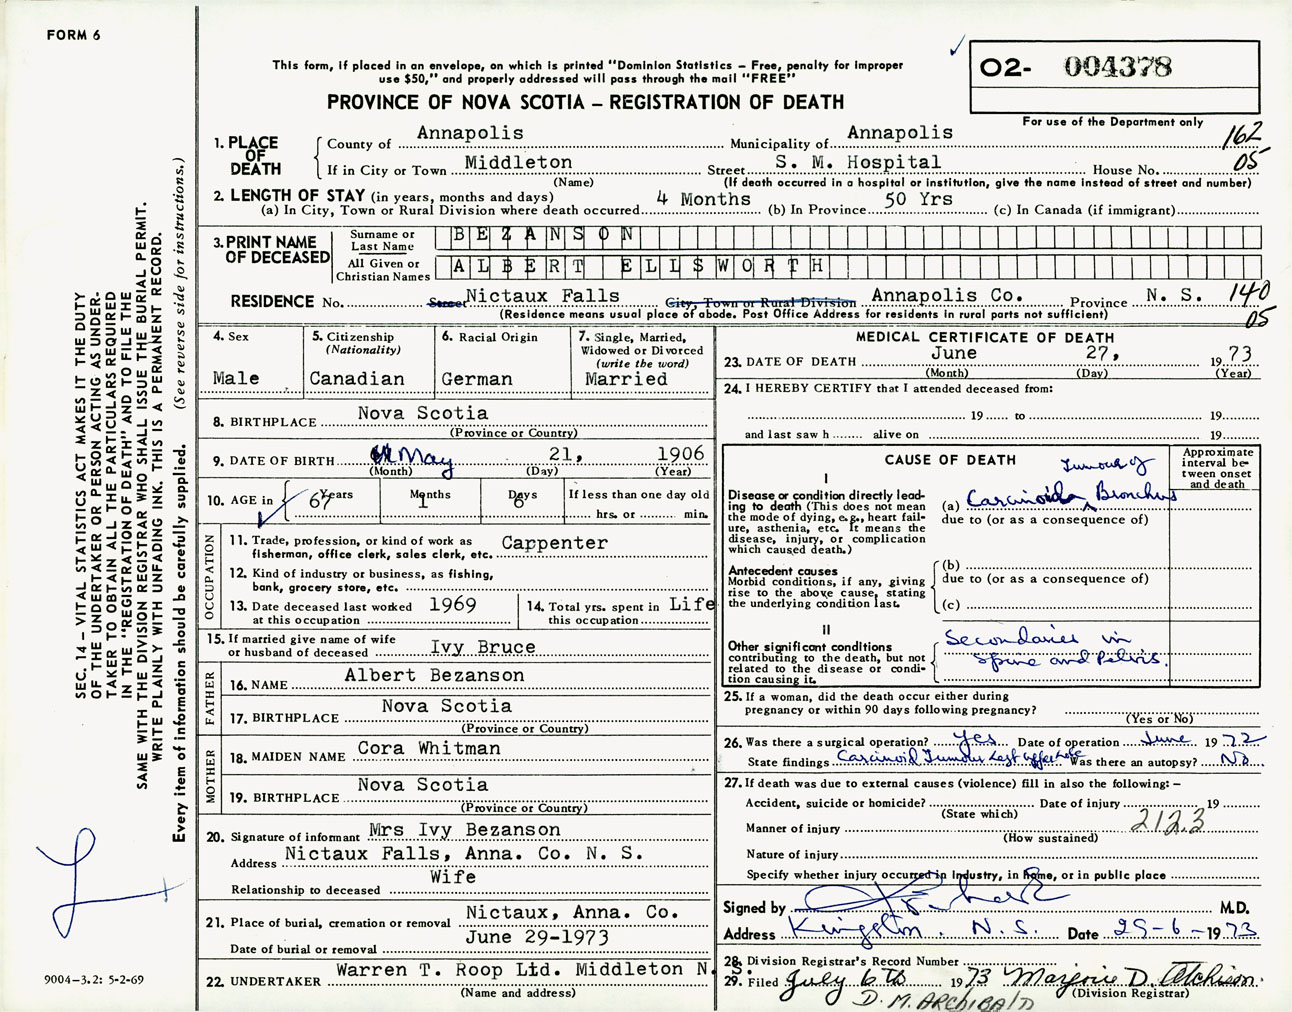 FORM 6
This form, if placed in an envelope, on which is printed "Dominion Statistics – Free, penalty for improper
use $50," and properly addressed will pass through the mail "FREE"
O2- 004378
For use of the Department only
PROVINCE OF NOVA SCOTIA – REGISTRATION OF DEATH
1. PLACE OF DEATH
County of Annapolis Municipality of Annapolis 162
If in City or Town Middleton Street S. M. Hospital House No. 05
(Name) (If death occurred in a hospital or institution, give the name instead of street and number)
2. LENGTH OF STAY (in years, months and days)
(a) In City, Town or Rural Division where death occurred 4 Months (b) In Province 50 Yrs (c) In Canada (if immigrant)
3. PRINT NAME OF DECEASED
Surname or Last Name BEZANSON
All Given or Christian Names ALBERT ELLSWORTH
RESIDENCE No. Street Nictaux Falls City, Town or Rural Division Annapolis Co. Province N. S. 140
(Residence means usual place of abode. Post Office Address for residents in rural parts not sufficient) 05
4. Sex
Male
5. Citizenship
(Nationality)
Canadian
6. Racial Origin
German
7. Single, Married,
Widowed or Divorced
(write the word)
Married
8. BIRTHPLACE Nova Scotia
(Province or Country)
9. DATE OF BIRTH May 21, 1906
(Month) (Day) (Year)
10. AGE in 67 Years 1 Months 6 Days If less than one day old
hrs. or min.
OCCUPATION
11. Trade, profession, or kind of work as Carpenter
fisherman, office clerk, sales clerk, etc.
12. Kind of industry or business, as fishing,
bank, grocery store, etc.
13. Date deceased last worked 1969
at this occupation
14. Total yrs. spent in Life
this occupation
15. If married give name of wife
or husband of deceased Ivy Bruce
FATHER
16. NAME Albert Bezanson
17. BIRTHPLACE Nova Scotia
(Province or Country)
MOTHER
18. MAIDEN NAME Cora Whitman
19. BIRTHPLACE Nova Scotia
(Province or Country)
20. Signature of informant Mrs Ivy Bezanson
Address Nictaux Falls, Anna. Co. N. S.
Relationship to deceased Wife
21. Place of burial, cremation or removal Nictaux, Anna. Co.
Date of burial or removal June 29-1973
22. UNDERTAKER Warren T. Roop Ltd. Middleton N. S.
(Name and address)
MEDICAL CERTIFICATE OF DEATH
23. DATE OF DEATH June 27, 1973
(Month) (Day) (Year)
24. I HEREBY CERTIFY that I attended deceased from:
19 to 19
and last saw h alive on 19
CAUSE OF DEATH
Approximate
interval be-
tween onset
and death
I
Disease or condition directly lead-
ing to death (This does not mean
the mode of dying, e.g., heart fail-
ure, asthenia, etc. It means the
disease, injury, or complication
which caused death.)
Tumour of
(a) Carcinoid Bronchus
due to (or as a consequence of)
Antecedent causes
Morbid conditions, if any, giving
rise to the above cause, stating
the underlying condition last.
(b)
due to (or as a consequence of)
(c)
II
Other significant conditions
contributing to the death, but not
related to the disease or condi-
tion causing it.
Secondaries in
spine and Pelvis.
25. If a woman, did the death occur either during
pregnancy or within 90 days following pregnancy?
(Yes or No)
26. Was there a surgical operation? Yes Date of operation June 1972
State findings Carcinoid Tumour Left upper lobe Was there an autopsy? No
27. If death was due to external causes (violence) fill in also the following: –
Accident, suicide or homicide? Date of injury 19
(State which)
Manner of injury 212.3
(How sustained)
Nature of injury
Specify whether injury occurred in Industry, in Home, or in public place
Signed by M.D.
Address Kingston, N. S. Date 29-6-1973
28. Division Registrar's Record Number
29. Filed July 6th 1973 Marjorie D. Atchison
(Division Registrar)
D. M. ARCHIBALD
SEC. 14 – VITAL STATISTICS ACT MAKES IT THE DUTY
OF THE UNDERTAKER OR PERSON ACTING AS UNDER-
TAKER TO OBTAIN ALL THE PARTICULARS REQUIRED
IN THE "REGISTRATION OF DEATH" AND TO FILE THE
SAME WITH THE DIVISION REGISTRAR WHO SHALL ISSUE THE BURIAL PERMIT.
WRITE PLAINLY WITH UNFADING INK. THIS IS A PERMANENT RECORD.
Every item of information should be carefully supplied. (See reverse side for instructions.)
9004–3.2: 5-2-69